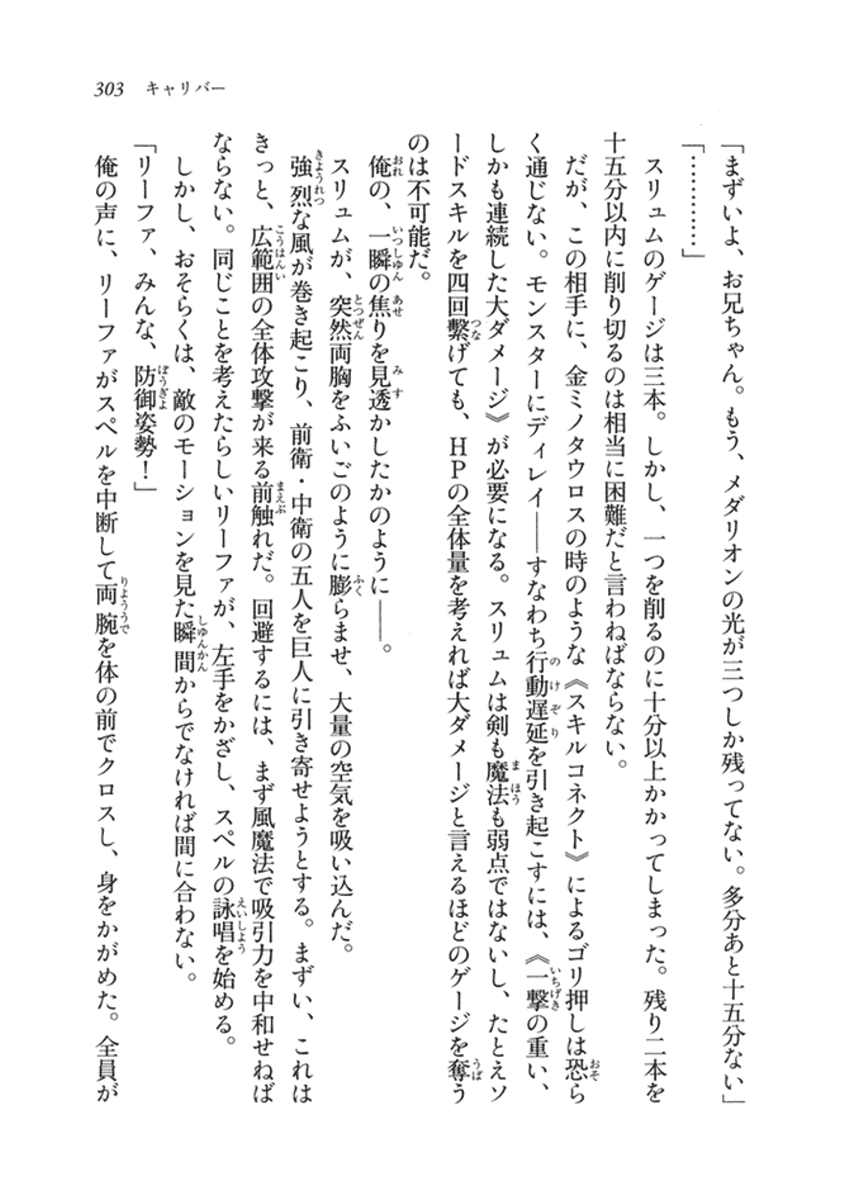 303　キャリバー
「まずいよ、お兄ちゃん。もう、メダリオンの光が三つしか残ってない。多分あと十五分ない」
「…………」
スリュムのゲージは三本。しかし、一つを削るのに十分以上かかってしまった。残り二本を
十五分以内に削り切るのは相当に困難だと言わねばならない。
だが、この相手に、金ミノタウロスの時のような《スキルコネクト》によるゴリ押しは恐ら
く通じない。モンスターにディレイ――すなわち行動遅延を引き起こすには、《一撃の重い、
しかも連続した大ダメージ》が必要になる。スリュムは剣も魔法も弱点ではないし、たとえソ
ードスキルを四回繋げても、HPの全体量を考えれば大ダメージと言えるほどのゲージを奪う
のは不可能だ。
俺の、一瞬の焦りを見透かしたかのように――。
スリュムが、突然両胸をふいごのように膨らませ、大量の空気を吸い込んだ。
強烈な風が巻き起こり、前衛・中衛の五人を巨人に引き寄せようとする。まずい、これは
きっと、広範囲の全体攻撃が来る前触れだ。回避するには、まず風魔法で吸引力を中和せねば
ならない。同じことを考えたらしいリーファが、左手をかざし、スペルの詠唱を始める。
しかし、おそらくは、敵のモーションを見た瞬間からでなければ間に合わない。
「リーファ、みんな、防御姿勢！」
俺の声に、リーファがスペルを中断して両腕を体の前でクロスし、身をかがめた。全員が